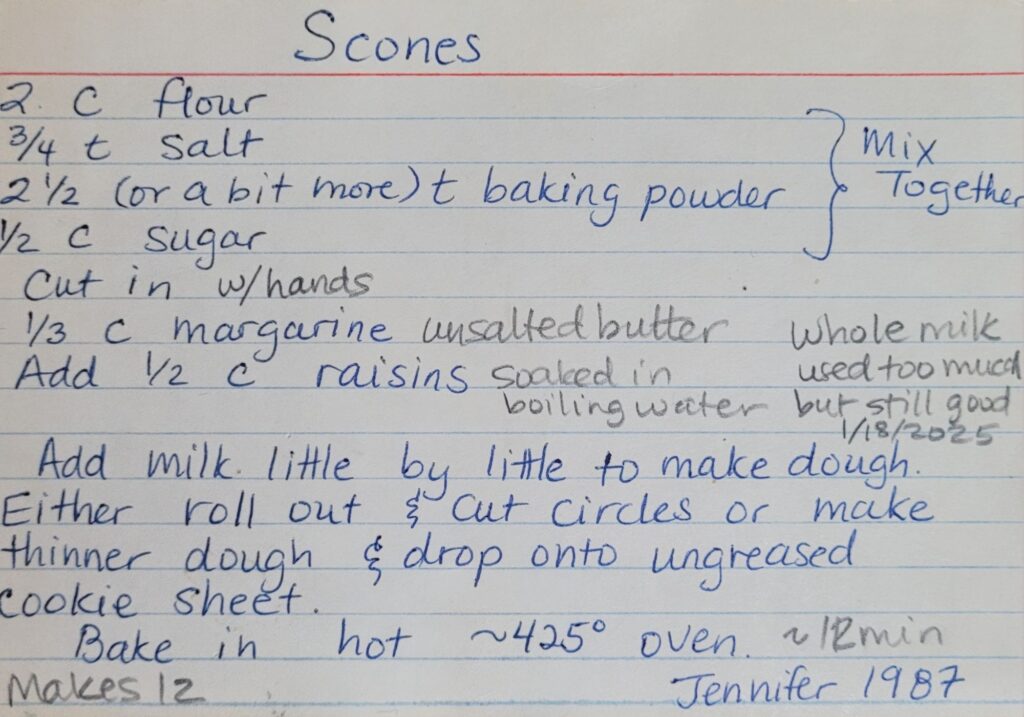 Scones
2 c flour
3/4 t salt
2 1/2 (or a bit more) t baking powder
1/2 c sugar
Mix
Together
Cut in w/hands
1/3 c margarine unsalted butter
Add 1/2 c raisins soaked in
boiling water
whole milk
used too much
but still good
1/18/2025
Add milk little by little to make dough.
Either roll out & cut circles or make
thinner dough & drop onto ungreased
cookie sheet.
Bake in hot ~425° oven. ~12min
Makes 12
Jennifer 1987